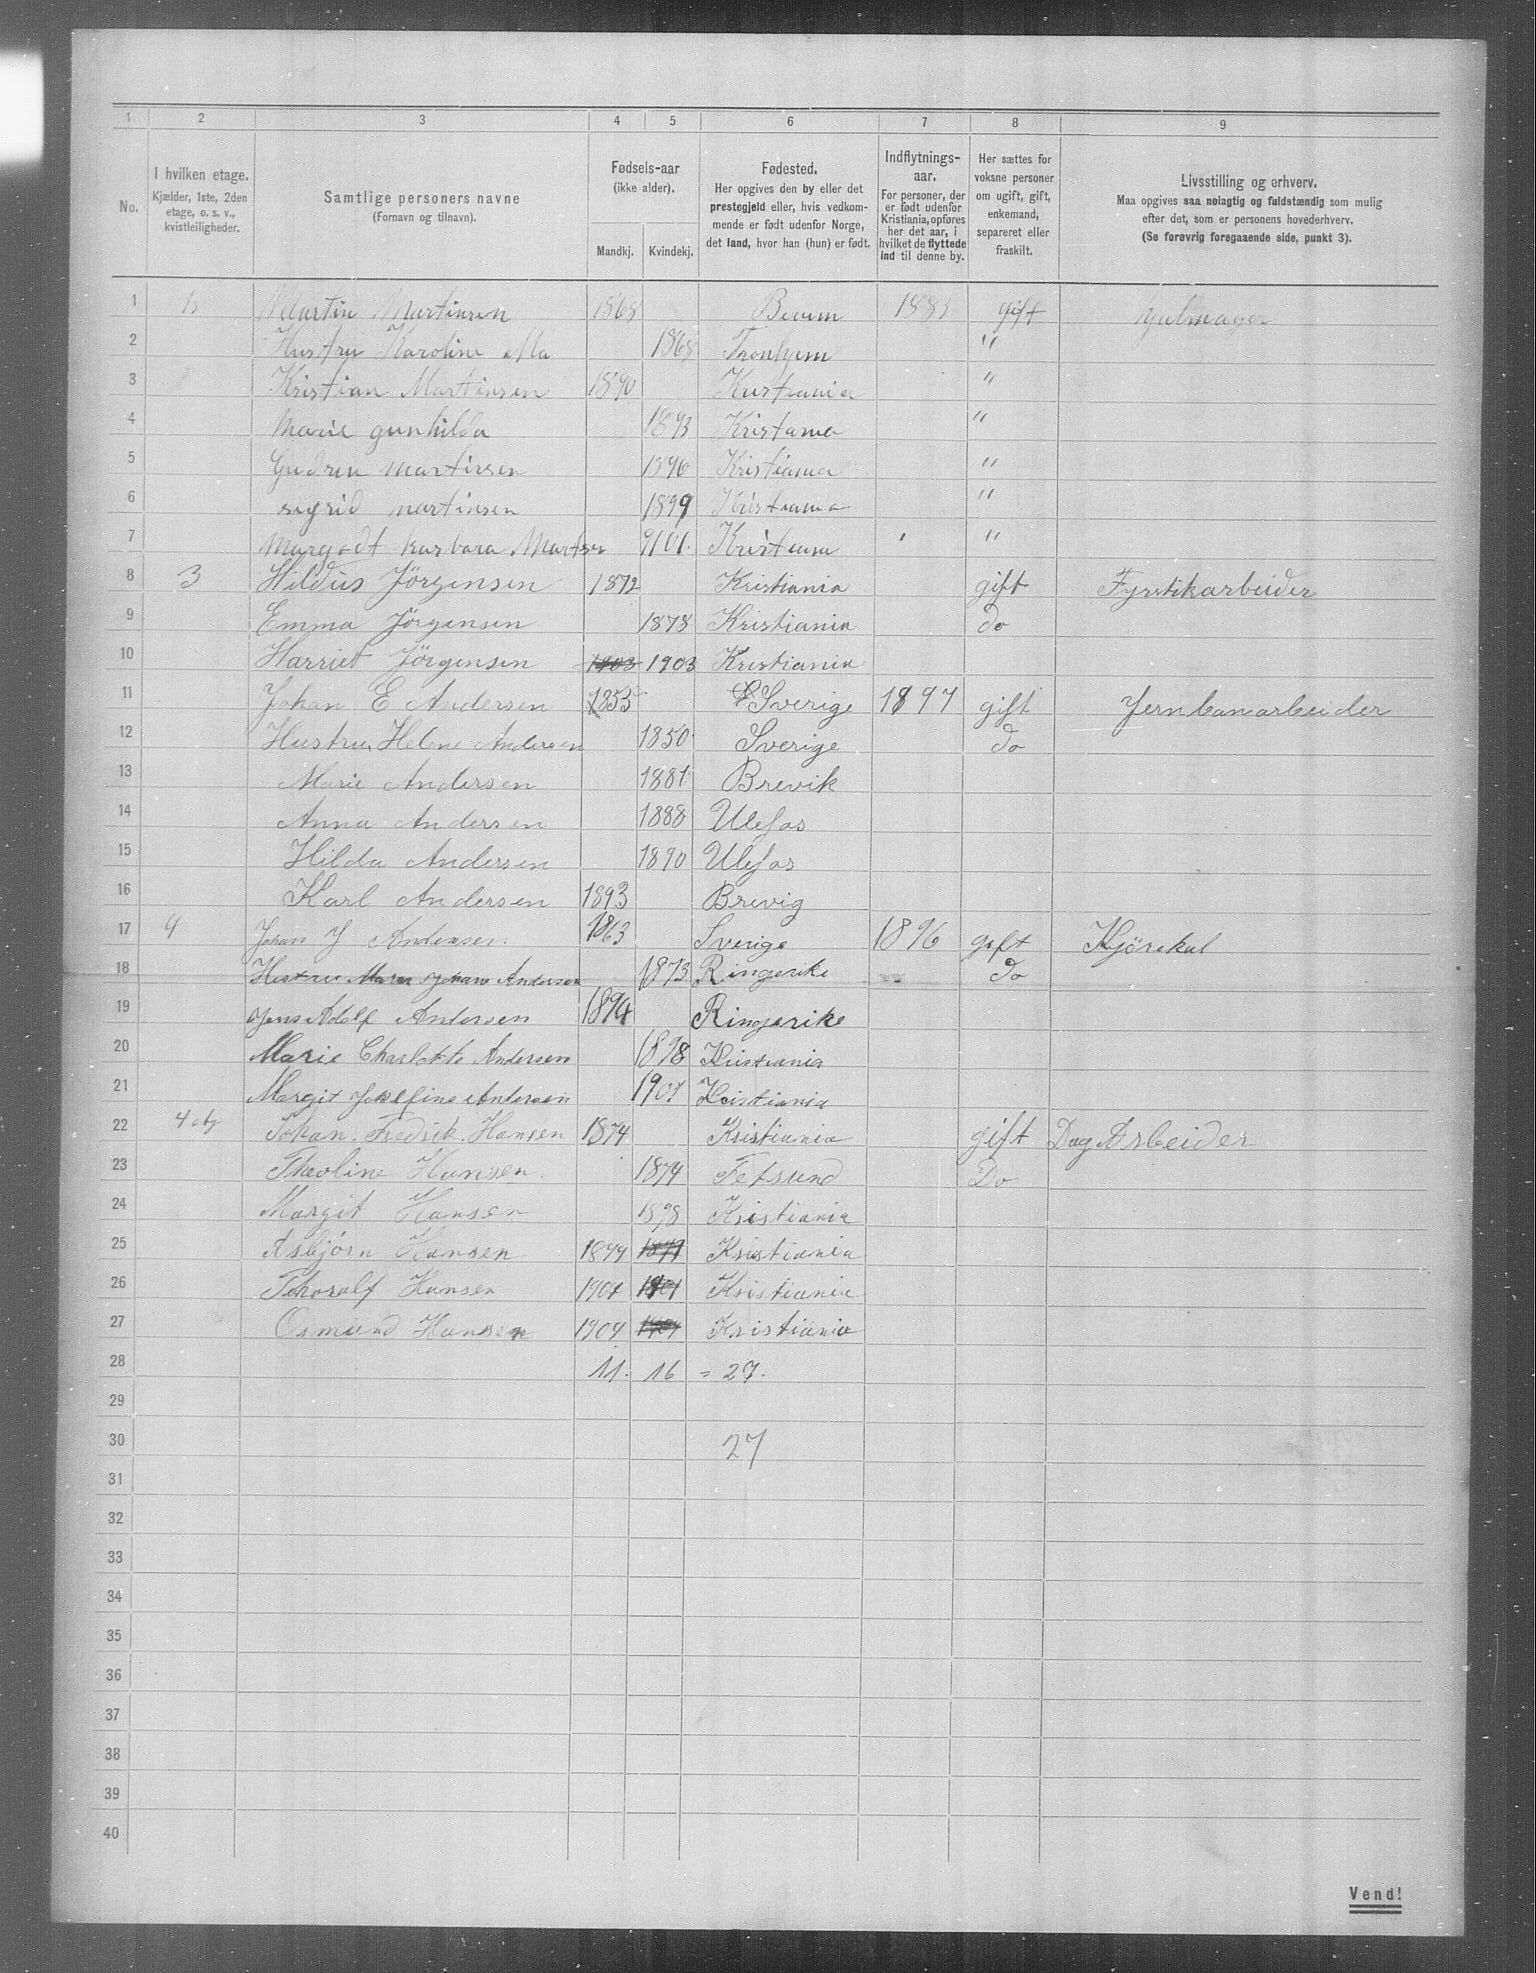 1 2 3 4 5 6 7 8 9
No.
I hvilken etage.
Kjælder, 1ste, 2den
etage, o. s. v.,
kvistleiligheder.
Samtlige personers navne
(Fornavn og tilnavn).
Fødsels-aar
(ikke alder).
Mandkj. Kvindekj.
Fødested.
Her opgives den by eller det
prestegjeld eller, hvis vedkom-
mende er født udenfor Norge,
det land, hvor han (hun) er født.
Indflytnings-
aar.
For personer, der
er født udenfor
Kristiania, opføres
her det aar, i
hvilket de flyttede
ind til denne by.
Her sættes for
voksne personer
om ugift, gift,
enkemand,
separeret eller
fraskilt.
Livsstilling og erhverv.
Maa opgives saa nøiagtig og fuldstændig som mulig
efter det, som er personens hovederhverv.
(Se forøvrig foregaaende side, punkt 3).
1 Martin Martinsen 1868 Berum 1883 gift hjulmager
2 Hustru Karoline Ma 1868 Trontjem "
3 Kristian Martinsen 1890 Kristiania "
4 Marie gunhilda 1893 Kristania "
5 Gudrun martinsen 1896 Kristiania "
6 sigrid martinsen 1899 Kristiania "
7 Margodt barbara Martsen 9101. Kristiania "
8 3 Hildus Jörgensen 1872 Kristiania gift Fyrstikarbeider
9 Emma Jörgensen 1878 Kristiania do
10 Harriet Jörgensen 1903 1903 Kristiania
11 Johan E Andersen 1853 Sverige 1897 gift Jernbanarbeider
12 Hustru Helene Andersen 1850 Sverige do
13 Marie Andersen 1881 Brevik
14 Anna Andersen 1888 Ulefos
15 Hilda Andersen 1890 Ulefos
16 Karl Andersen 1893 Brevig
17 4 Johan J Andersen 1863 Sverige 1896 gift Kjörekal
18 Hustru Maren Johane Andersen 1873 Ringerike do
19 Jens Adolf Andersen 1894 Ringerike
20 Marie Charlotte Andersen 1898 Kristiania
21 Margit Josefine Andersen 1901 Kristiania
22 4 etg Johan Fredrik Hansen 1874 Kristiania gift Dag Arbeider
23 Theoline Hansen 1874 Fetsund Do
24 Margit Hansen 1898 Kristiania
25 Asbjörn Hansen 1899 1899 Kristiania
26 Thoralf Hansen 1901 1901 Kristiania
27 Osmund Hansen 1904 1904 Kristiania
28 11. 16 = 27.
29
30 27
31
32
33
34
35
36
37
38
39
40
Vend!